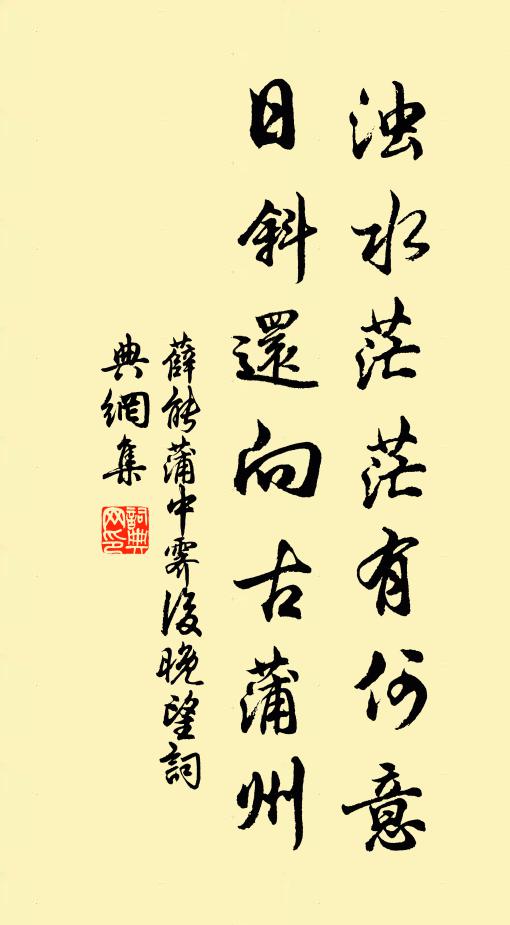 浊水茫茫有何意
日斜還向古蒲州
薛能蒲中霽後晚望詞
典網集
詞典网印